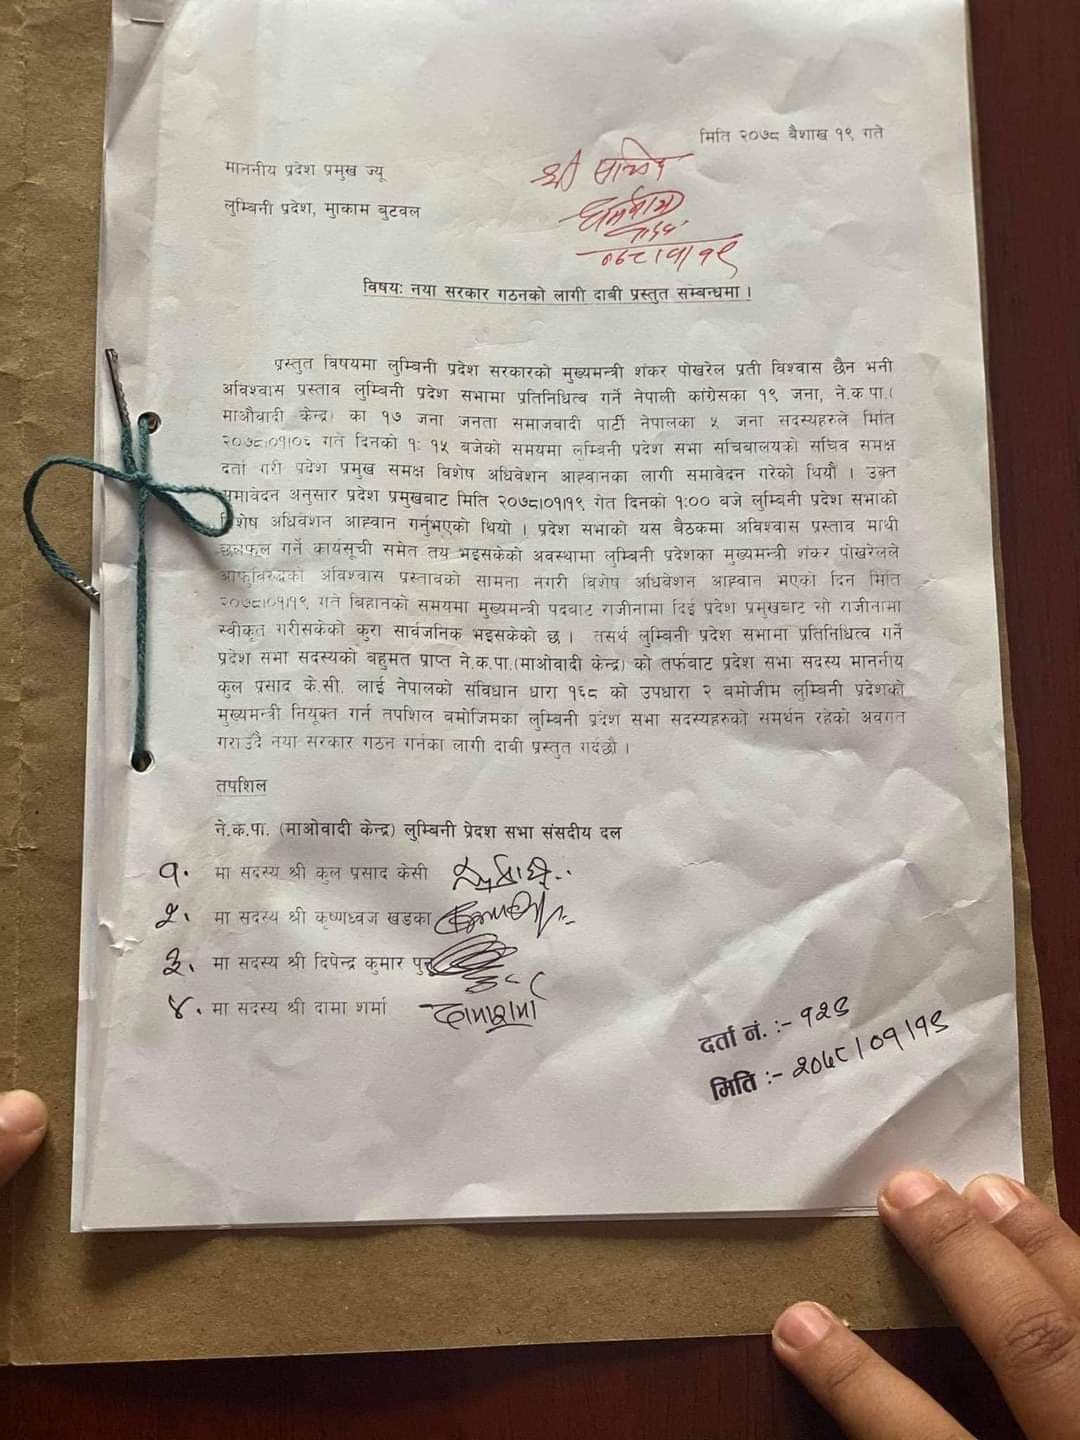 मिति २०७८ बैशाख १९ गते
माननीय प्रदेश प्रमुख ज्यू
लुम्बिनी प्रदेश, मुाकाम बुटवल
श्री सचिव
०७८।१।१९
विषयः नया सरकार गठनको लागी दाबी प्रस्तुत सम्बन्धमा ।
प्रस्तुत विषयमा लुम्बिनी प्रदेश सरकारको मुख्यमन्त्री शंकर पोखरेल प्रती विश्वास छैन भनी
अविश्वास प्रस्ताव लुम्बिनी प्रदेश सभामा प्रतिनिधित्व गर्ने नेपाली कांग्रेसका १९ जना, ने.क.पा.(
माओवादी केन्द्र) का १७ जना जनता समाजवादी पार्टी नेपालका ५ जना सदस्यहरुले मिति
२०७८।०१।०६ गते दिनको १: १५ बजेको समयमा लुम्बिनी प्रदेश सभा सचिबालयको सचिव समक्ष
दर्ता गरी प्रदेश प्रमुख समक्ष विशेष अधिवेशन आह्वानका लागी समावेदन गरेको थियौं । उक्त
समावेदन अनुसार प्रदेश प्रमुखबाट मिति २०७८।०१।१९ गेत दिनको १:०० बजे लुम्बिनी प्रदेश सभाको
विशेष अधिवेशन आह्वान गर्नुभएको थियो । प्रदेश सभाको यस बैठकमा अविश्वास प्रस्ताव माथी
छलफल गर्ने कार्यसूची समेत तय भइसकेको अवस्थामा लुम्बिनी प्रदेशका मुख्यमन्त्री शंकर पोखरेलले
आफूविरुद्धको अविश्वास प्रस्तावको सामना नगरी विशेष अधिवेशन आह्वान भएको दिन मिति
२०७८।०१।१९ गते बिहानको समयमा मुख्यमन्त्री पदबाट राजीनामा दिई प्रदेश प्रमुखबाट सो राजीनामा
स्वीकृत गरीसकेको कुरा सार्वजनिक भइसकेको छ । तसर्थ लुम्बिनी प्रदेश सभामा प्रतिनिधित्व गर्ने
प्रदेश सभा सदस्यको बहुमत प्राप्त ने.क.पा.(माओवादी केन्द्र) को तर्फबाट प्रदेश सभा सदस्य माननीय
कुल प्रसाद के.सी. लाई नेपालको संविधान धारा १६८ को उपधारा २ बमोजीम लुम्बिनी प्रदेशको
मुख्यमन्त्री नियूक्त गर्न तपशिल बमोजिमका लुम्बिनी प्रदेश सभा सदस्यहरुको समर्थन रहेको अवगत
गराउँदै नया सरकार गठन गर्नका लागी दाबी प्रस्तुत गर्दछौ ।
तपशिल
ने.क.पा. (माओवादी केन्द्र) लुम्बिनी प्रेदश सभा संसदीय दल
१. मा सदस्य श्री कुल प्रसाद केसी
२. मा सदस्य श्री कृष्णध्वज खडका
३. मा सदस्य श्री दिपेन्द्र कुमार पुन
४. मा सदस्य श्री दामा शर्मा दामा शर्मा
दर्ता नं. :- १२९
मिति :- २०७८।०१।१९